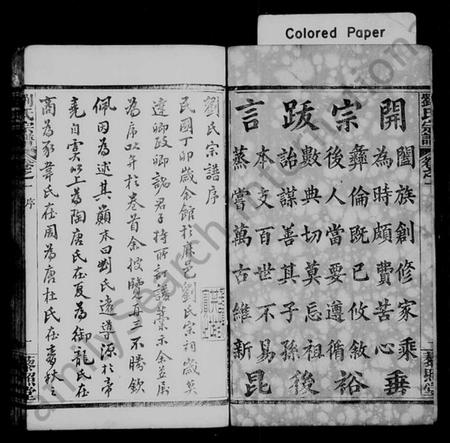 Colored Paper
劉氏宗譜 卷之一 藜照堂
開宗跋言
闔族創修家乘
為時頗費苦心
彝倫既已攸敘
後人當要遵循
數典切莫忘祖
詒謀善其子孫
本文百世不易
蒸嘗萬古維新
垂裕後昆
劉氏宗譜序
民國丁卯歲余館於麻邑劉氏宗祠歲莫
達卿政卿諸君子將所訂譜藁示余並属
為序以弁於卷首余披覽再三不勝欽
佩因為述其巔末曰劉氏遠導源於帝
堯自虞以上為陶唐氏在夏為御龍氏在
商為豕韋氏在周為唐杜氏在春秋之
劉氏宗譜 卷之一 序 藜照堂